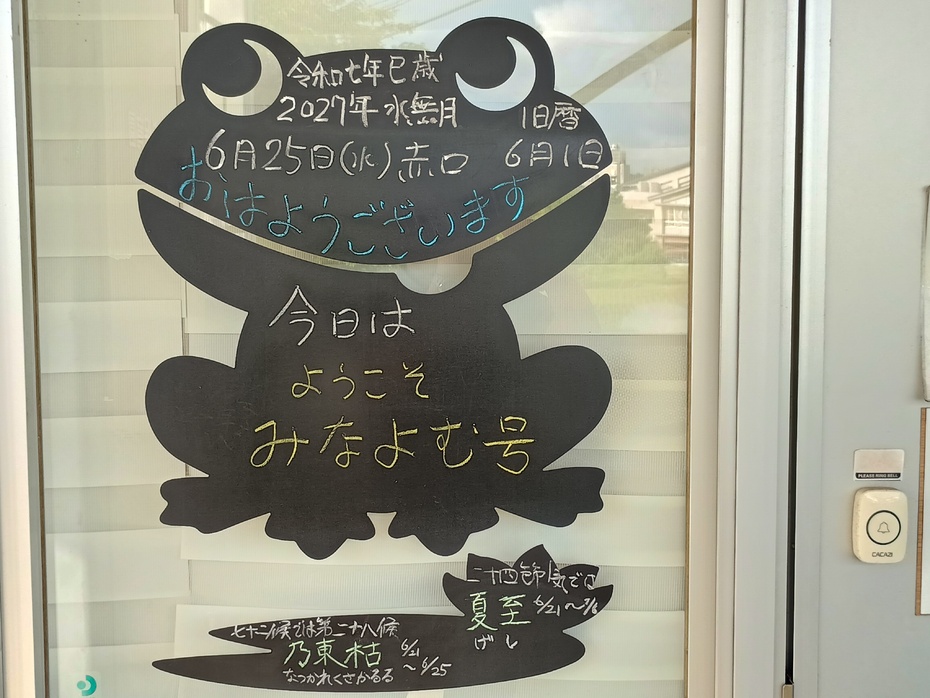 令和七年巳歳
2027年 水無月
旧暦
6月25日(水)赤口
6月1日
おはようございます
今日は
ようこそ
みなよむ号
二十四節気では
夏至 6/21～7/6
げし
七十二候では第二十八候
乃東枯 6/21～6/25
なつかれくさかるる
PLEASE RING BELL
CACAZI